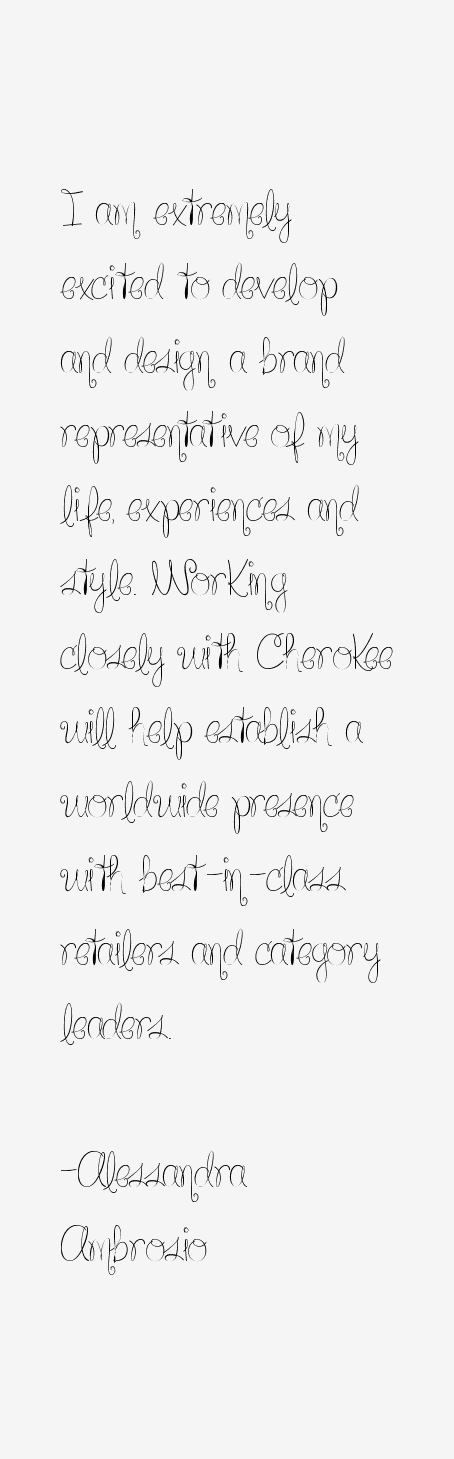 I am extremely
excited to develop
and design a brand
representative of my
life, experiences and
style. Working
closely with Cherokee
will help establish a
worldwide presence
with best-in-class
retailers and category
leaders.
-Alessandra
Ambrosio